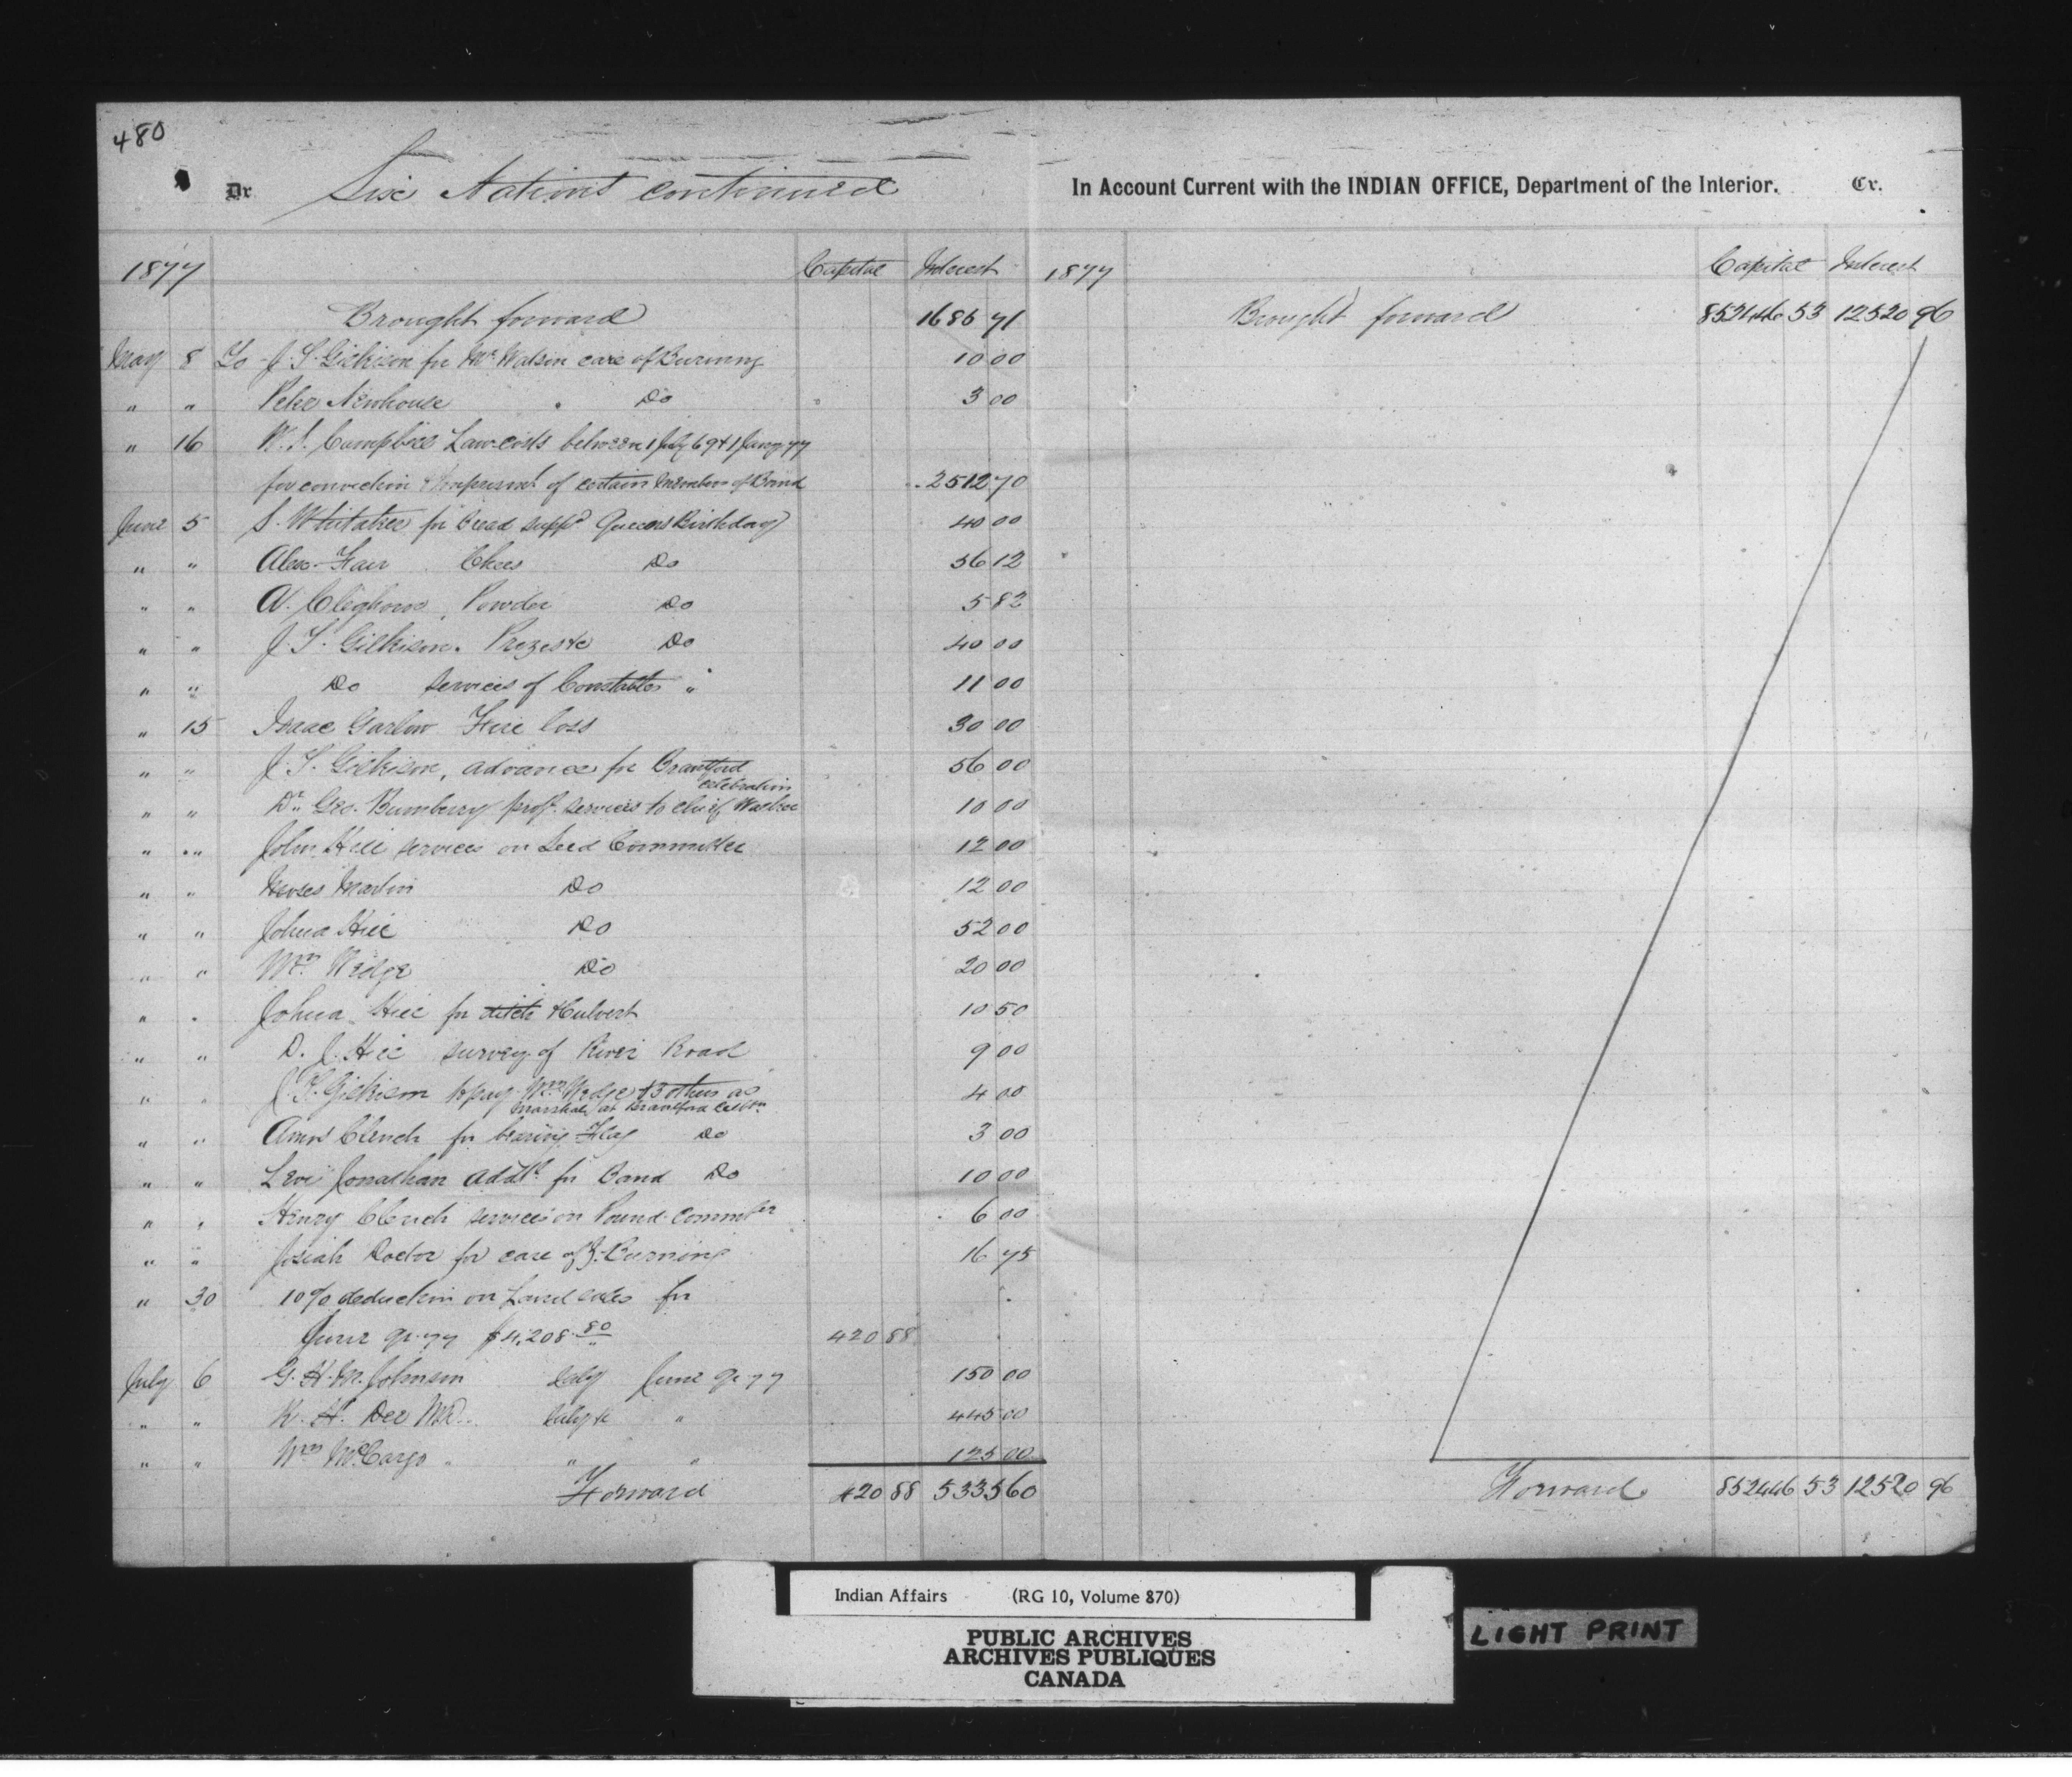 480
Dr Six Nations continued In Account Current with the INDIAN OFFICE, Department of the Interior. Cr.
1877 Capital Interest 1877 Capital Interest
Brought forward 1686 71 Brought forward 852446 53 12520 96
May 8 To J. T. Gilkison for Mr Watson care of Burning 10 00
" " Peter Newhouse Do 3 00
" 16 W. S. Campbell Law costs between 1 July 69 & 1 Jany 77
for conviction & Imprismt of certain members of Band 2512 70
June 5 S. Whitaker for Bread suppd Queens Birthday 40 00
" " Alex Fair Chees Do 56 12
" " A. Cleghorn, Powder Do 5 82
" " J. T. Gilkison. Prizes &c Do 40 00
" " Do services of Constables " 11 00
" 15 Isaac Garlow Fire loss 30 00
" " J. T. Gilkison, advance for Brantford 56 00
celebration
" " Dr Geo. Bumberry profl services to chief Walker 10 00
" " John Hill services on Seed Committee 12 00
" " Moses Martin Do 12 00
" " Johua Hill Do 52 00
" " Wm Wedge Do 20 00
" " Johua Hill for ditch & Culvert 10 50
" " D. J. Hill survey of River Road 9 00
" " J. T. Gilkison to pay Wm Wedge & 3 others as 4 00
Marshals at Brantford Celbn
" " Amos Clench for bearing Flag Do 3 00
" " Levi Jonathan addl for Band Do 10 00
" " Henry Clench services on Pound Committee 6 00
" " Josiah Doctor for care of J. Burning 16 75
" 30 10% deduction on Land sales for
June qr 77 $4,208.80 420 88
July 6 G. H. M. Johnson Saly June qr 77 150 00
" " R. H. Dee M.D. Saly &c " 445 00
" " Wm McCargo " " " 125 00
Forward 420 88 5335 60 Forward 852446 53 12520 96
Indian Affairs (RG 10, Volume 870)
PUBLIC ARCHIVES
ARCHIVES PUBLIQUES
CANADA
LIGHT PRINT